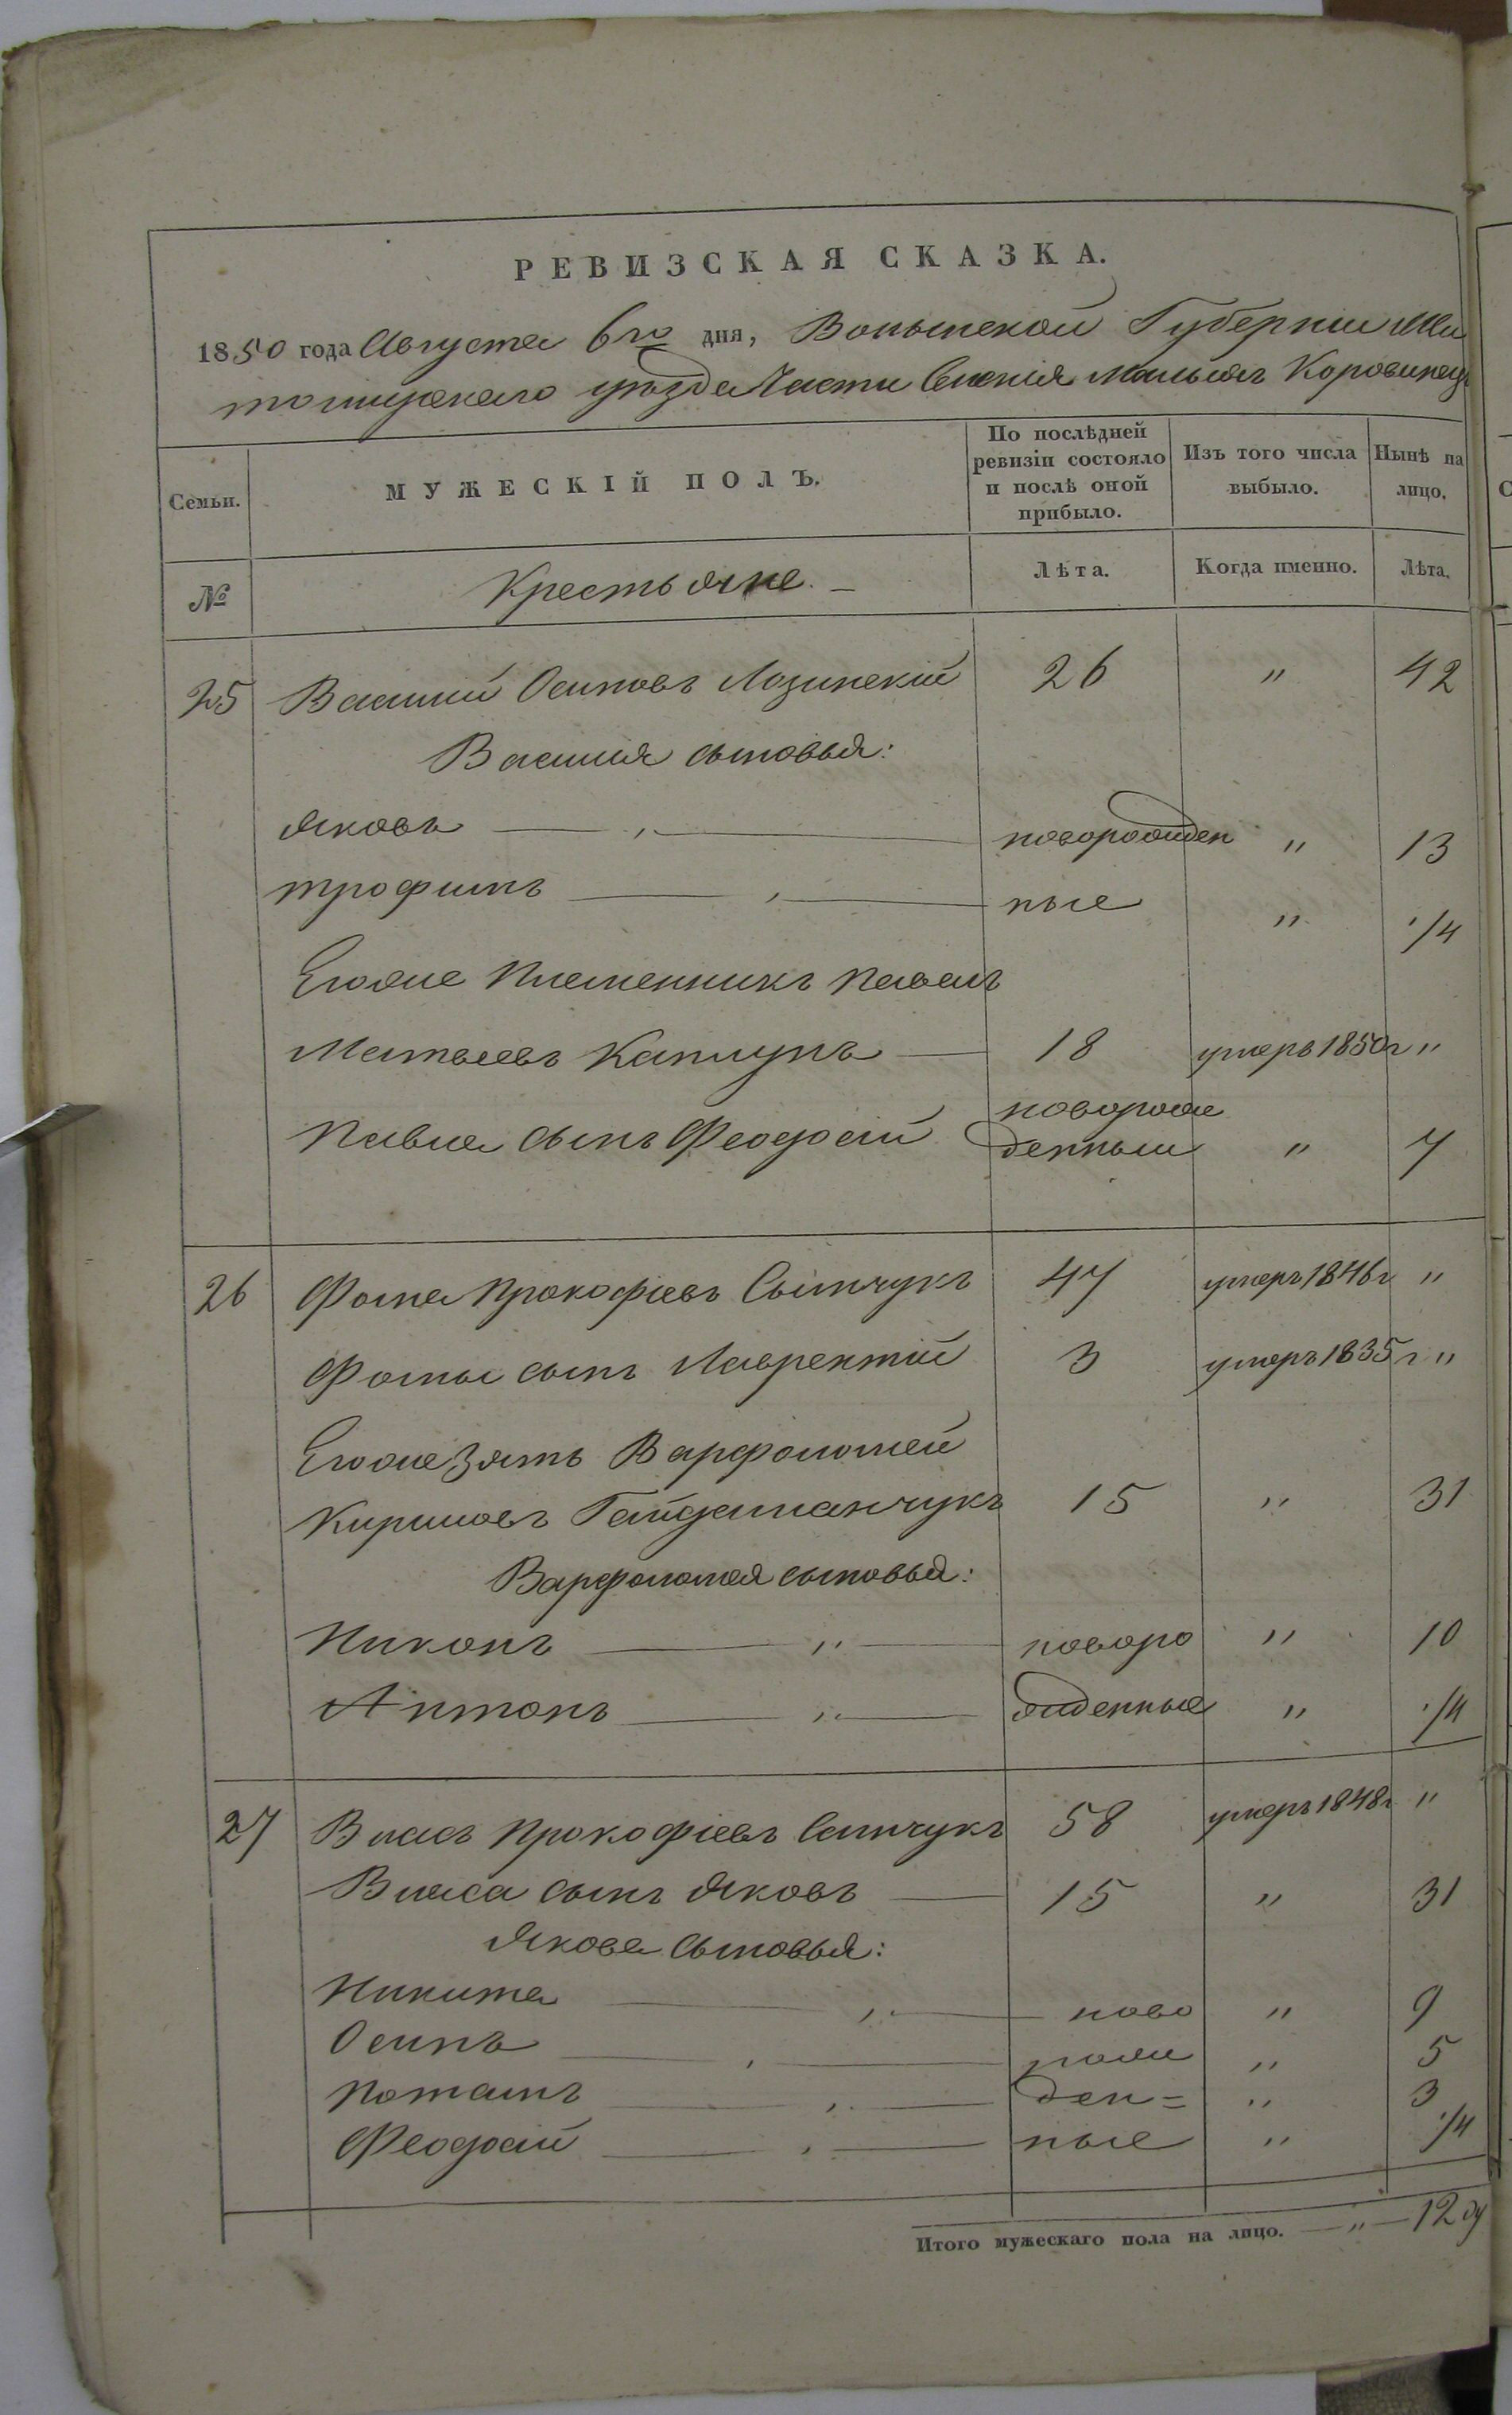 РЕВИЗСКАЯ СКАЗКА.
1850 года Августа 6го дня, Волынской Губернии Жи
томирскаго уѣзда Части Селенія Малыхъ Коровинец
Семьи.
МУЖЕСКІЙ ПОЛЪ.
По послѣдней ревизіи состояло и послѣ оной прибыло.
Изъ того числа выбыло.
Нынѣ на лицо.
№ Крестьяне. — Лѣта. Когда именно. Лѣта.
25 Василій Осиповъ Лозинскій 26 " 42
Василія сыновья:
Яковъ — " — новорожден " 13
Трофимъ — " — ные " 1/4
Егоже Племенникъ Павелъ
Матвеевъ Каплунъ — 18 умеръ 1850г "
Павла сынъ Феодосій новорож
денный " 7
26 Фома Прокофіевъ Симчукъ 47 умеръ 1846г "
Фомы сынъ Лаврентій 3 умеръ 1835г "
Егоже зять Варфоломей
Кириловъ Гайдаманчукъ 15 " 31
Варфоломея сыновья:
Никонъ — " — новоро " 10
Антонъ — " — жденные " 1/4
27 Власъ Прокофіевъ Симчукъ 58 умеръ 1848г "
Власа сынъ Яковъ — 15 " 31
Якова сыновья:
Никита — " — ново " 9
Осипъ — " — рож " 5
Потапъ — " — ден= " 3
Феодосій — " — ные " 1/4
Итого мужескаго пола на лицо. — " — 12 ду